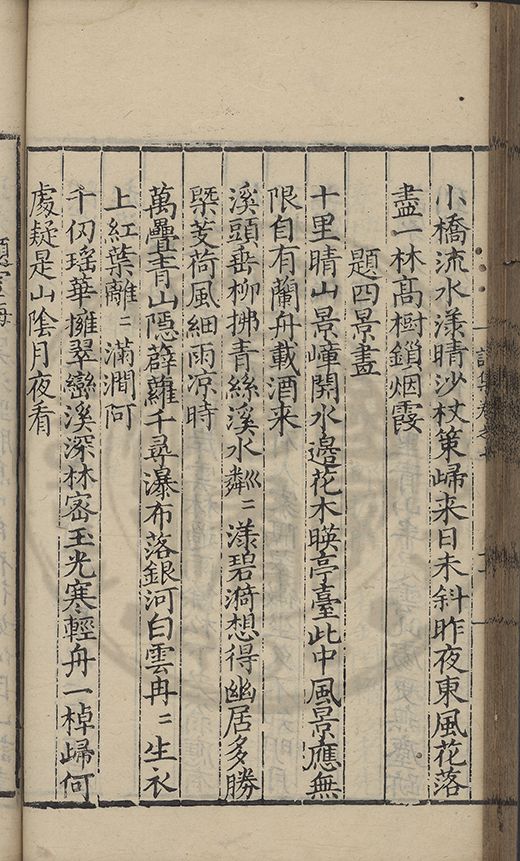 小橋流水漾晴沙杖策歸来日未斜昨夜東風花落
盡一林髙樹鎖烟霞
題四景畫
十里晴山景嶂開水邉花木暎亭臺此中風景應無
限自有蘭舟載酒来
溪頭垂柳拂青絲溪水粼〻漾碧漪想得幽居多勝
槩芰荷風細雨凉時
萬疊青山隠薜蘿千尋瀑布落銀河白雲冉〻生衣
上紅葉離〻滿澗阿
千仞瑶華擁翠巒溪深林宻玉光寒輕舟一棹歸何
處疑是山隂月夜看